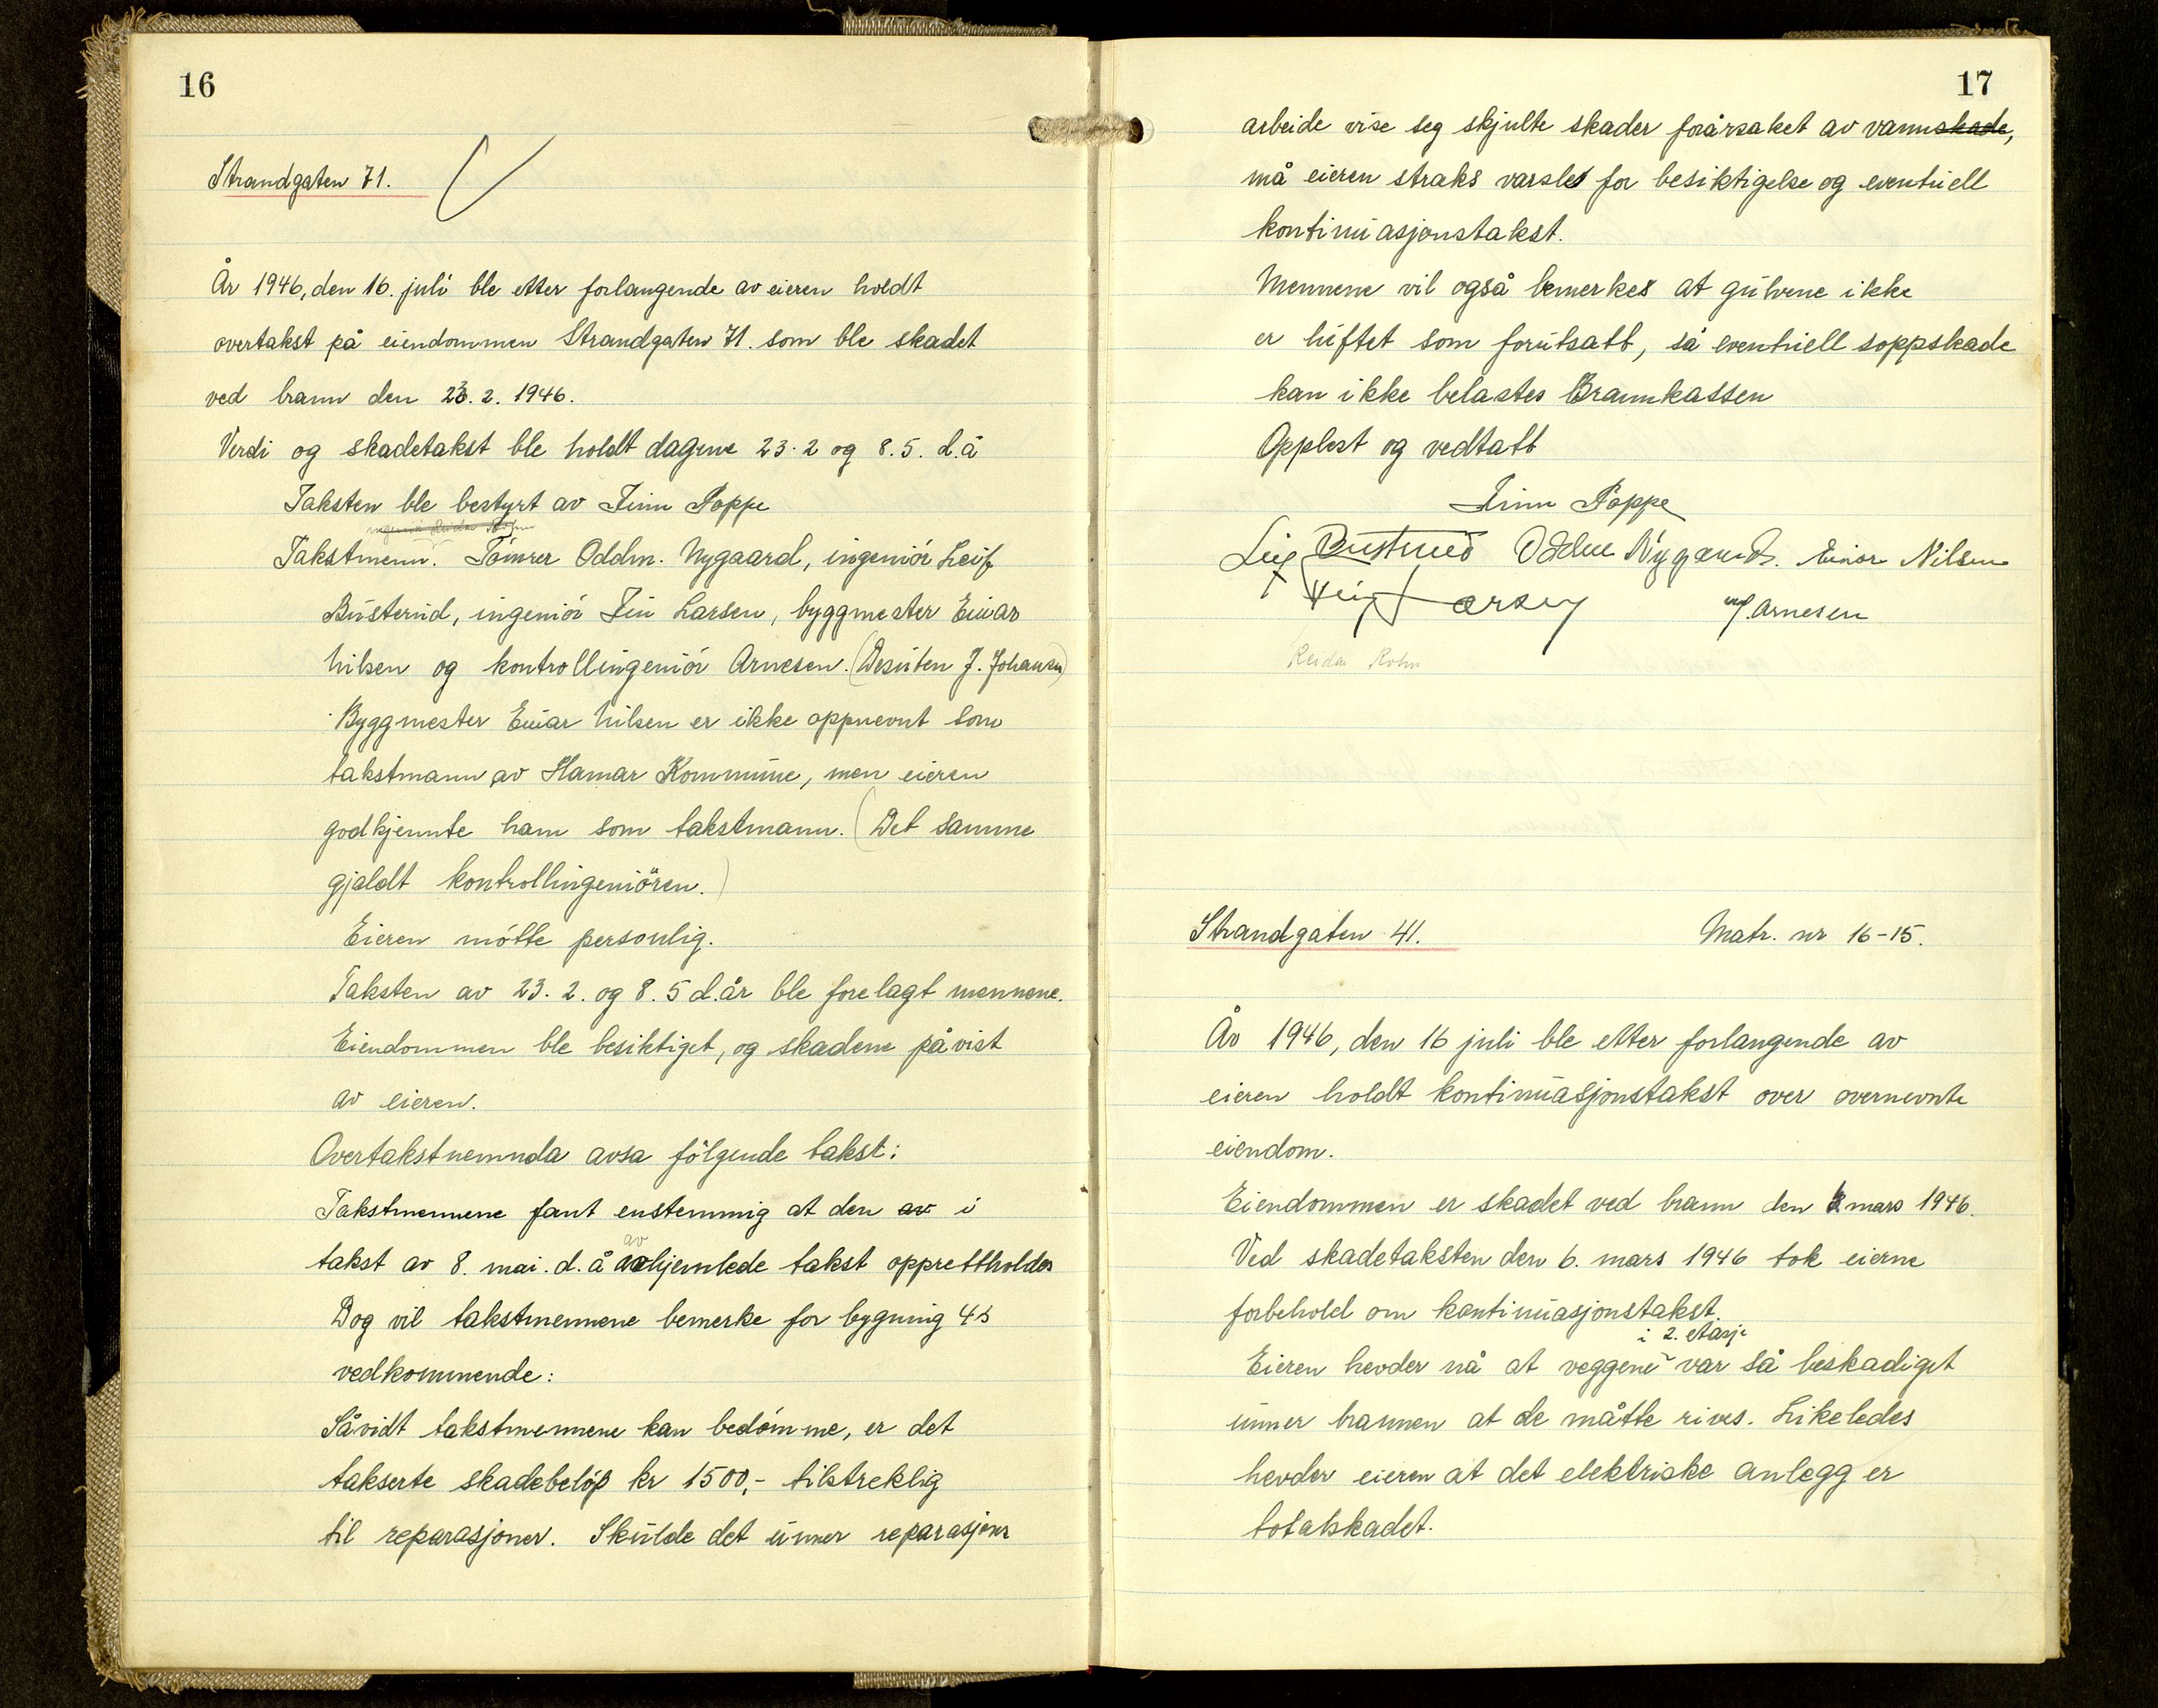 16
Strandgaten 71.
År 1946, den 16. juli ble etter forlangende av eieren holdt
overtakst på eiendommen Strandgaten 71. som ble skadet
ved brann den 23. 2. 1946.
Verdi og skadetakst ble holdt dagene 23. 2 og 8. 5. d.å
Taksten ble bestyrt av Finn Poppe
Takstmenn. Tömrer Oddm. Nygaard, ingeniör Leif
Busterud, ingeniör Finn Larsen, byggmester Einar
Nilsen og kontrollingeniör Arnesen. (Desuten J. Johansen)
Byggmester Einar Nilsen er ikke oppnevnt som
takstmann av Hamar Kommune, men eieren
godkjennte ham som takstmann. (Det samme
gjaldt kontrollingeniören.)
Eieren mötte personlig.
Taksten av 23. 2. og 8. 5 d.år ble forelagt mennene.
Eiendommen ble besiktiget, og skadene påvist
av eieren.
Overtakstnemnda avsa fölgende takst:
Takstmennene fant enstemmig at den av i
takst av 8. mai. d. å avhjemlede takst opprettholdes
Dog vil takstmennene bemerke for bygning 4s
vedkommende:
Såvidt takstmennene kan bedömme, er det
takserte skadebelöp kr 1500,- tilstreklig
til reparasjoner. Skulde det unner reparasjons
17
arbeide vise seg skjulte skader forårsaket av vannskade,
må eieren straks varsles for besiktigelse og eventuell
kontinuasjonstakst.
Mennene vil også bemerkes at gulvene ikke
er luftet som forutsatt, så eventuell soppskade
kan ikke belastes Brannkassen
Opplest og vedtatt
Finn Poppe
Leif Busterud Oddm Nygaard. Einar Nilsen
Larsen Arnesen
Reidar Rohn
Strandgaten 41. Matr. nr 16-15.
År 1946, den 16 juli ble etter forlangende av
eieren holdt kontinuasjonstakst over overnevnte
eiendom.
Eiendommen er skadet ved brann den mars 1946.
Ved skadetaksten den 6. mars 1946 tok eierne
forbehold om kontinuasjonstakst.
i 2. etasje
Eieren hevder nå at veggene var så beskadiget
unner brannen at de måtte rives. Likeledes
hevder eieren at det elektriske anlegg er
totalskadet.